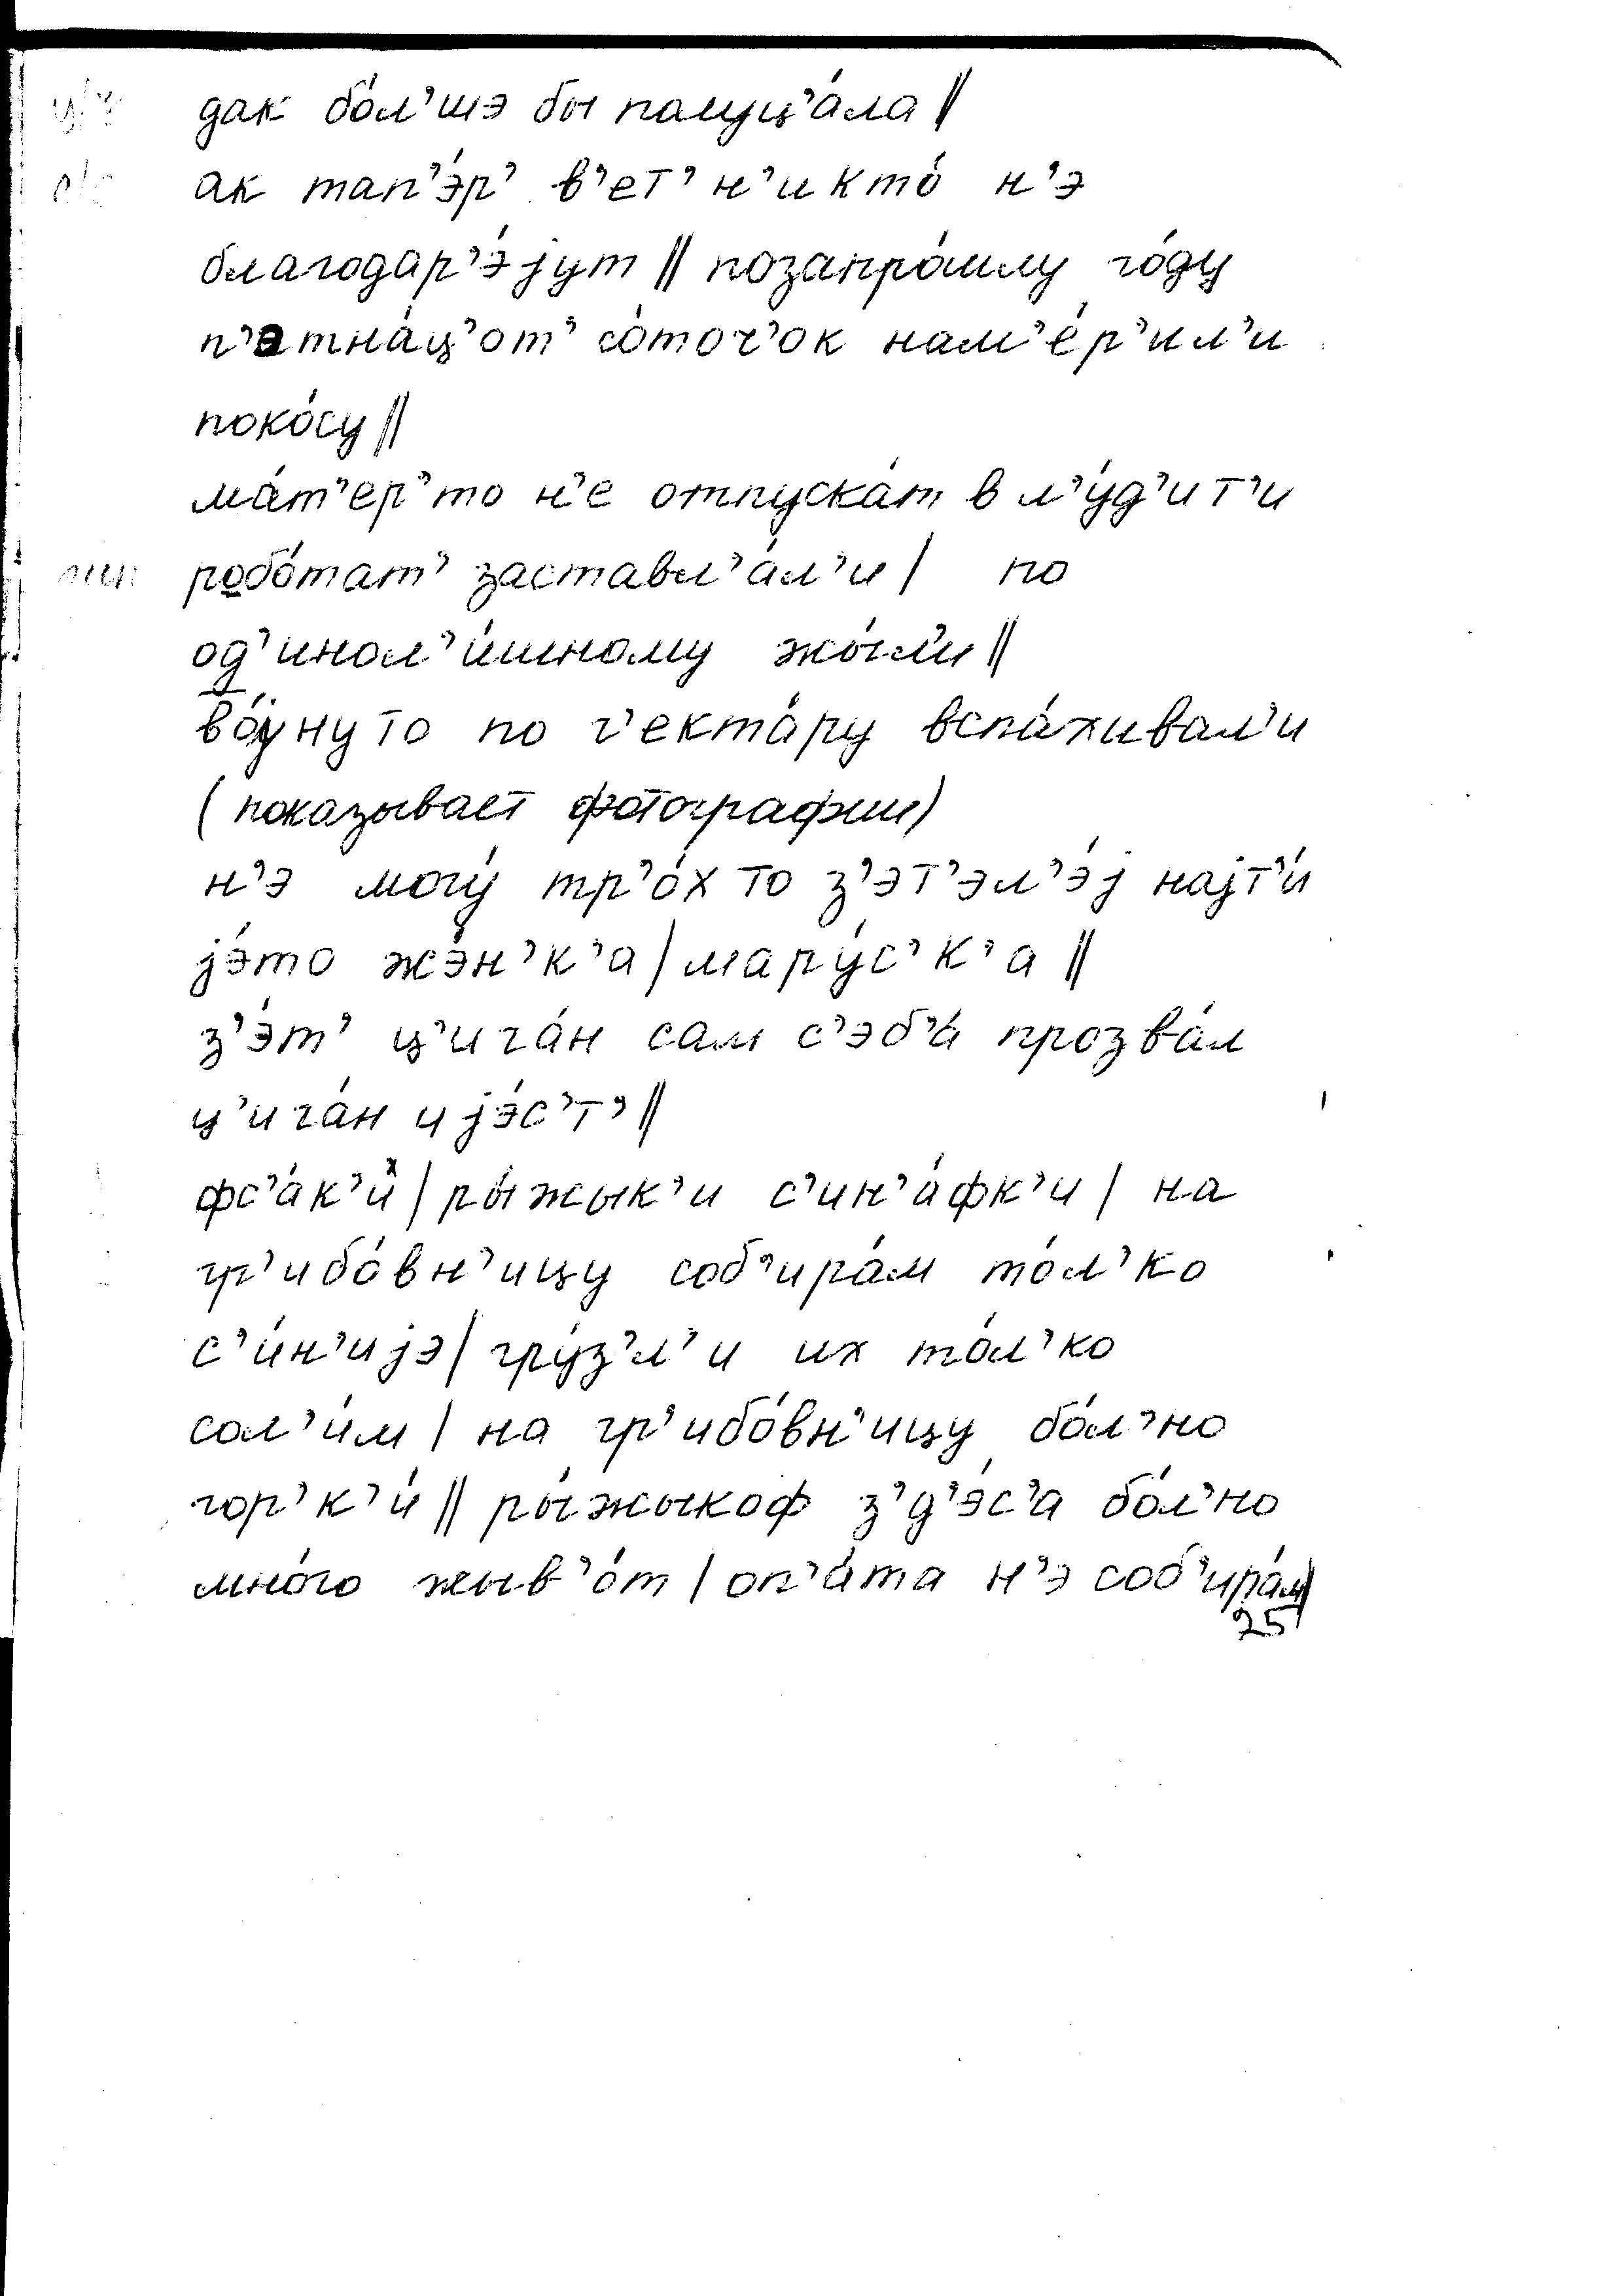 дак бо́л’шэ бы палуц’а́ла ||
ак тап’э́р’ в’ет’ н’икто́ н’э
благодар’э́jут || позапро́шлу го́ду
п’этна́ц’от’ со́точ’ок нам’е́р’ил’и
поко́су ||
ма́т’ер’то н’е отпуска́т в л’у́д’и т’и
робо́тат’ заставл’а́л’и | по
од’инол’и́шному жы́л’и ||
во́jнуто по г’екта́ру вспа́хивал’и
(показывает фотографии)
н’э могу́ тр’о́х то з’эт’эл’э́j наjт’и́
jэ́то жэ́н’к’а | мару́с’к’а ||
з’э́т’ ц’ига́н сам с’эб’а́ прозва́л
ц’ига́н и jэ́с’т’ ||
фс’а́к’и̌х | ры́жык’и с’ин’а́фк’и | на
гр’ибо́вн’ицу соб’ира́м то́л’ко
с’и́н’иjэ | гру́з’л’и их то́л’ко
сол’и́м | на гр’ибо́вн’ицу бо́л’но
гор’к’и́ || ры́жыкоф з’д’э́с’а бо́л’но
мно́го жыв’о́т | оп’а́та н’э соб’ира́м |
25